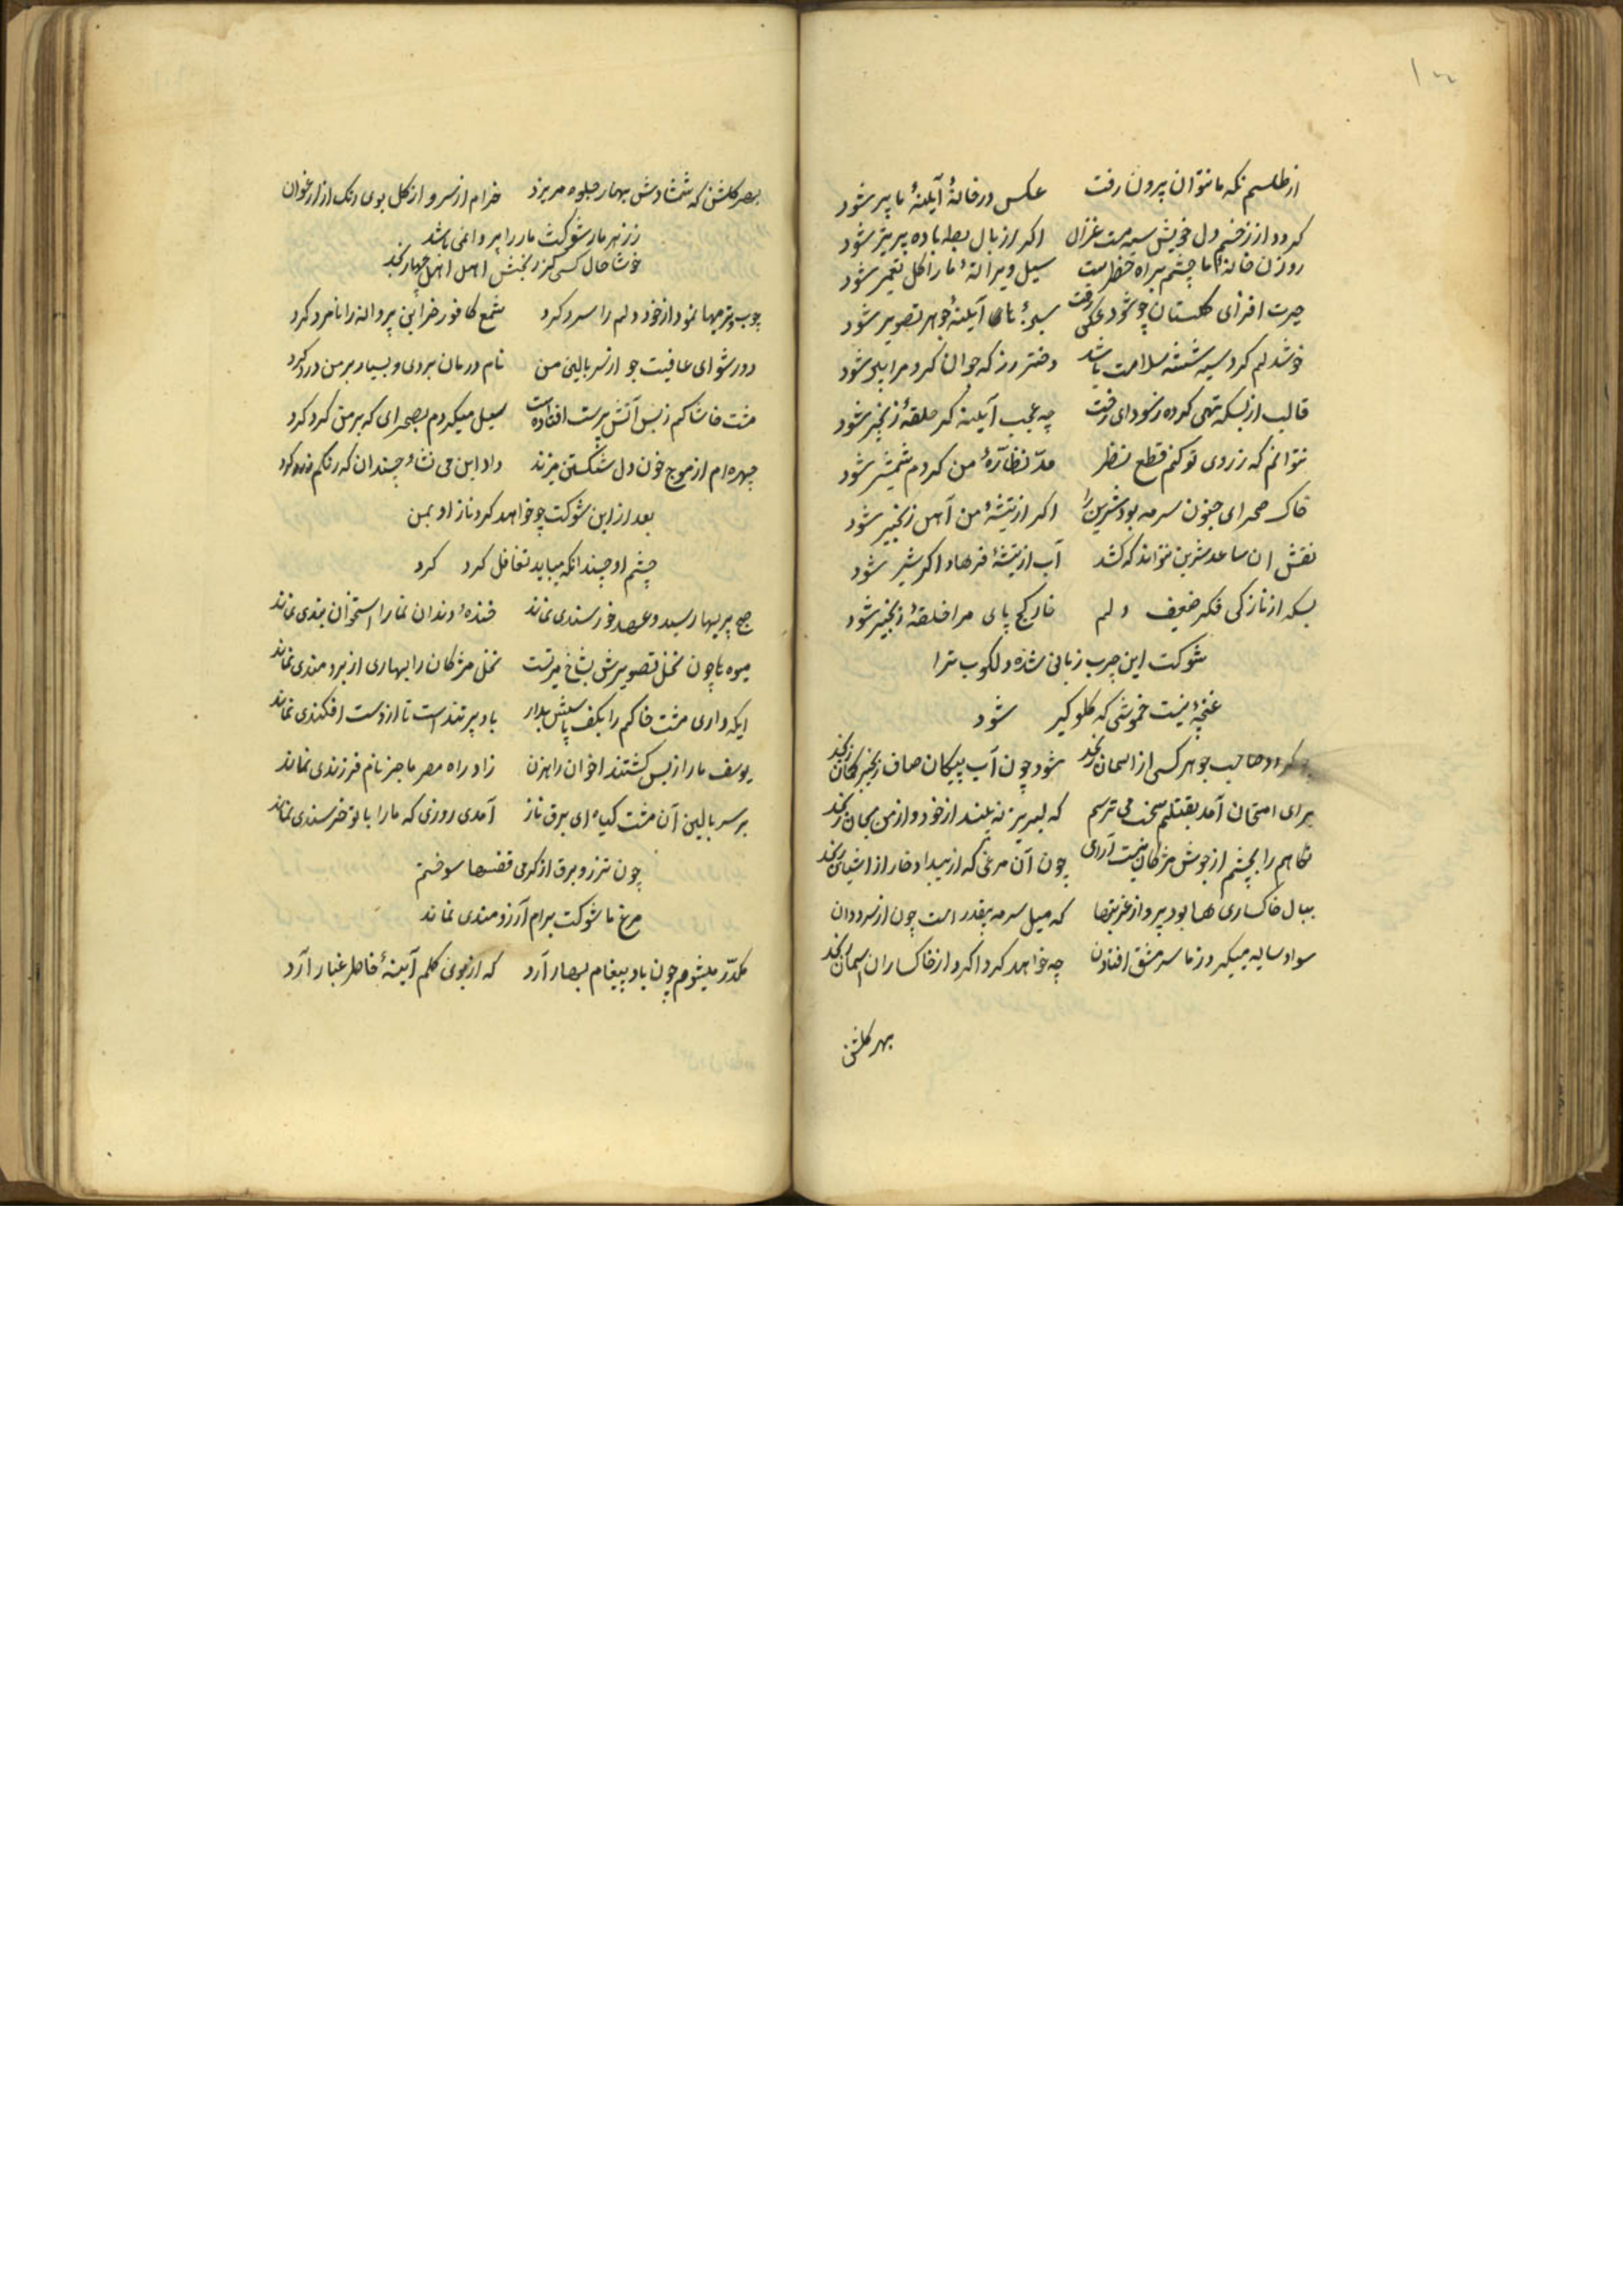 از طلسم نکه ما نتوان بیرون رفت عکس در خانهٔ آیلنهٔ ما پیر شود
کردد از زخم دل خویش سیه مست غزال اکر از بال بط باده پر تیر شود
روزن خانهٔ ما چشم براه خطر است سیل ویرانهٔ ما را کل تعمیر شود
حیرت افزای کلستان چو شود عکس رخت سبزهٔ پای آیلنه جوهر تصویر شود
خوشدلم کرد سیه شیشه سلامت باشد دختر رز که جوان کرد مرا پیر شود
قالب از بسکه تهی کرده ز سودای رخت چه عجب آیلنه کر حلقهٔ زنجیر شود
نتوانم که ز روی تو کنم قطع نظر مدّ نظّارهٔ من کر دم شمشیر شود
خاک صحرای جنون سرمه بود شیرین را اکر از تیشهٔ من آهن زنجیر شود
نقش ان ساعد شیرین نتواند که کشد آب از تیشهٔ فرهاد اکر شیر شود
بسکه از نازکی فکر ضعیف دلم خار کج پای مرا حلقهٔ زنجیر شود
شوکت این چرب زبانی شده دلکوب ترا
غنچهٔ نیست خموشی که کلو کیر شود
کر او صاحب جوهر کسی از اسمان رنجد شود چون آب پیکان صاف
برای امتحان آمد بقتلم سخت می ترسم که لبریزند از خود و از من بجان رنجد
نکاهم را بچشم از جوش مژکان نیست آرای چون آن مرغی که از بیداد خار از اشیان رنجد
ببال خاکساری ها بود پرواز عزتها که میل سرمه بیقدر است چون از سرمه دان
سواد سایه میکیرد ز ما سر مشق افتادن چه خواهد کرد اکر از خاکساران اسمان رنجد
بهر کلشن
بهر کلشن که شمشادش بهار جلوه می ریزد خرام از سرو از کل بوی رنک از ارغوان
ز زهر مار شوکت مار را پروا نمی باشد
خوشا حال کسی کز رنجش اهل رنجد
چوب تر میها نمود از خود دلم را سرد کرد شمع کافور خزاین پروانه را نامرد کرد
دور شو ای عافیت جو از سر بالین من نام درمان بردی و بسیار بر من درد کرد
مشت خاشاکم ز بس آتش پرست افتاده است سیل میکردم بصحرای که بر من کرد کرد
چهره ام از موج خون دل شکستن میزند داد این می نشاء چندان که رنکم زرد کرد
بعد از این شوکت چو خواهد کرد ناز او بمن
چشم او چندانکه میباید تغافل کرد کرد
صبح پیریها رسید و عهد خرسندی نماند خندهٔ دندان نما را استخوان بندی نماند
میوه ها چون نخل تصویرش بشاخ میرتست نخل مژکان را بهاری از برومندی نماند
ایکه داری مشت خاکم را بکف پاسش بدار باد پر تند است تا از دست افکندی نماند
یوسف ما را ز بس کشتند اخوان راهزن زاد راه مصر ما جز نام فرزندی نماند
بر سر بالین آن مشت کیاه ای برق ناز آمدی روزی که ما را با تو خرسندی نماند
چون تذرو برق از کرمی قفسها سوختم
مرغ ما شوکت برام آرزومندی نماند
مکدّر میشوم چون باد پیغام بهار آرد که از بوی کلم آیینهٔ خاطر غبار آرد